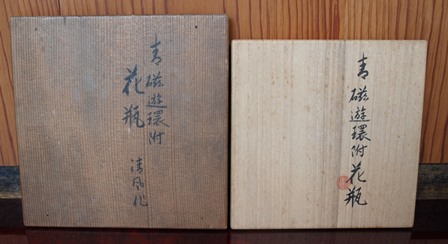 青磁遊環附
花瓶
清風作
青磁遊環附花瓶